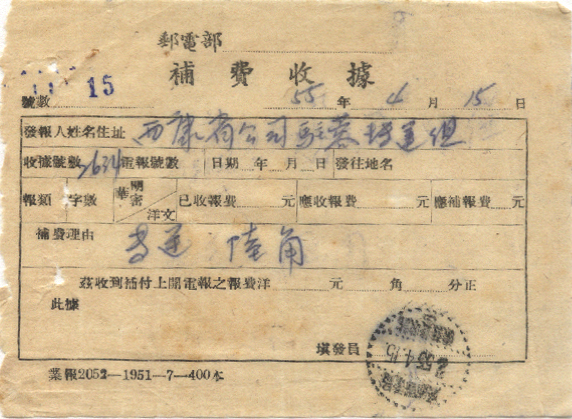 郵電部
補費收據
15
號數 55 年 4 月 15 日
發報人姓名住址 西康省公司駐蓉轉運組
收據號數 2634 電報號數 日期 年 月 日 發往地名
報類 字數 華 明密 洋文 已收報費 元 應收報費 元 應補報費 元
補費理由 專送 陸角
茲收到補付上開電報之報費洋 元 角 分正
此據
填發員
55.4.15
業報2052—1951—7—400本